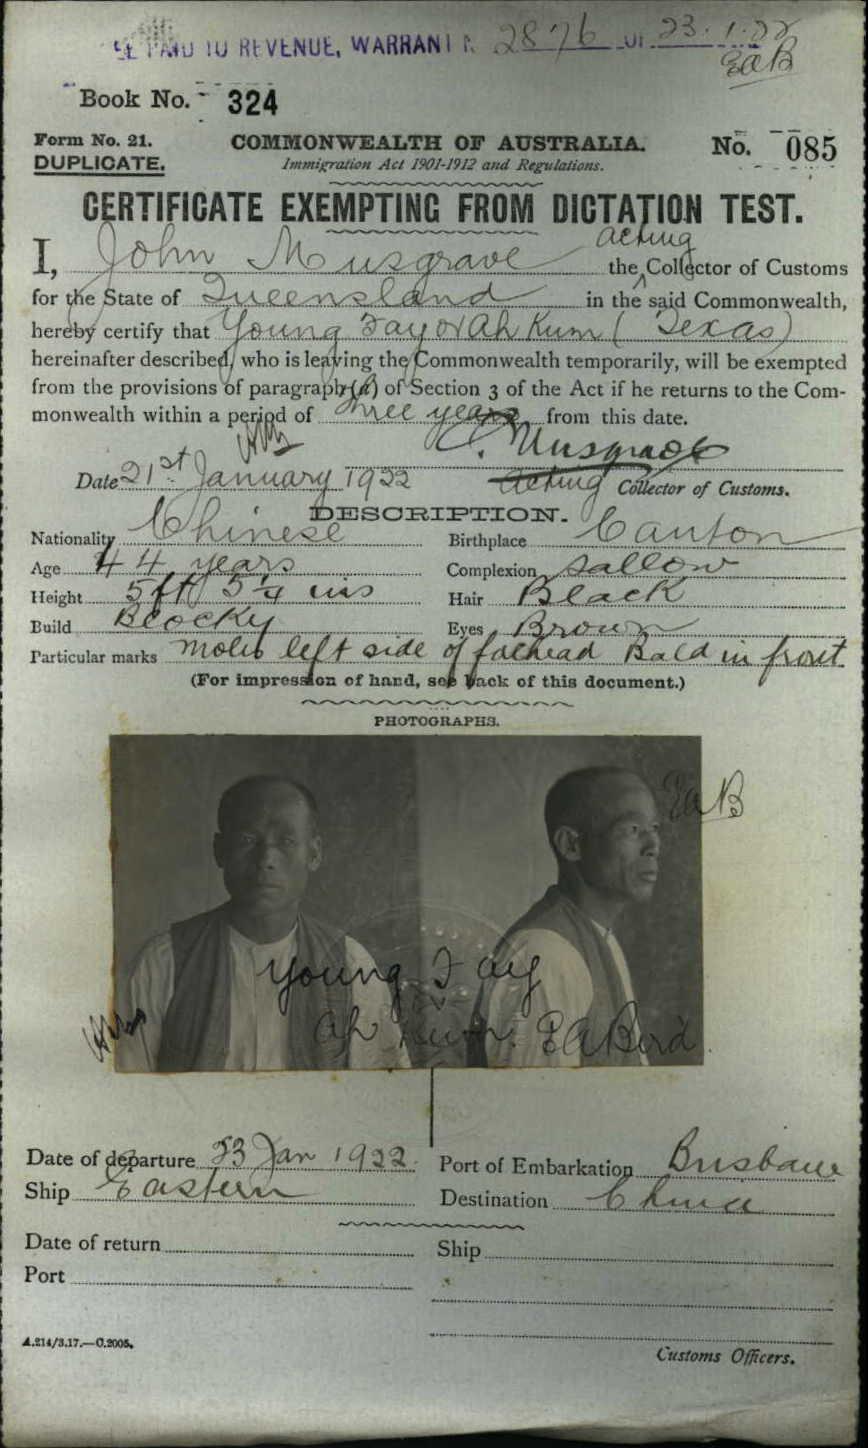 PAID TO REVENUE, WARRANT N 2876 OF 23.1.22
EAB
Book No. 324
Form No. 21.
DUPLICATE.
COMMONWEALTH OF AUSTRALIA.
Immigration Act 1901-1912 and Regulations.
No. 085
CERTIFICATE EXEMPTING FROM DICTATION TEST.
acting
I, John Musgrave the Collector of Customs
for the State of Queensland in the said Commonwealth,
hereby certify that Young Fay or Ah Kum (Texas)
hereinafter described, who is leaving the Commonwealth temporarily, will be exempted
from the provisions of paragraph (a) of Section 3 of the Act if he returns to the Com-
monwealth within a period of three years from this date.
J. Musgrave
Date 21st January 1922
Acting Collector of Customs.
DESCRIPTION.
Nationality Chinese Birthplace Canton
Age 44 years Complexion Sallow
Height 5ft 5¼ ins Hair Black
Build Blocky Eyes Brown
Particular marks Moles left side of forhead Bald in front
(For impression of hand, see back of this document.)
PHOTOGRAPHS.
EAB
Young Fay
or
Ah Kum. EA Bird.
Date of departure 23 Jan 1922. Port of Embarkation Brisbane
Ship Eastern Destination China
Date of return Ship
Port
A.214/3.17.—C.2005.
Customs Officers.